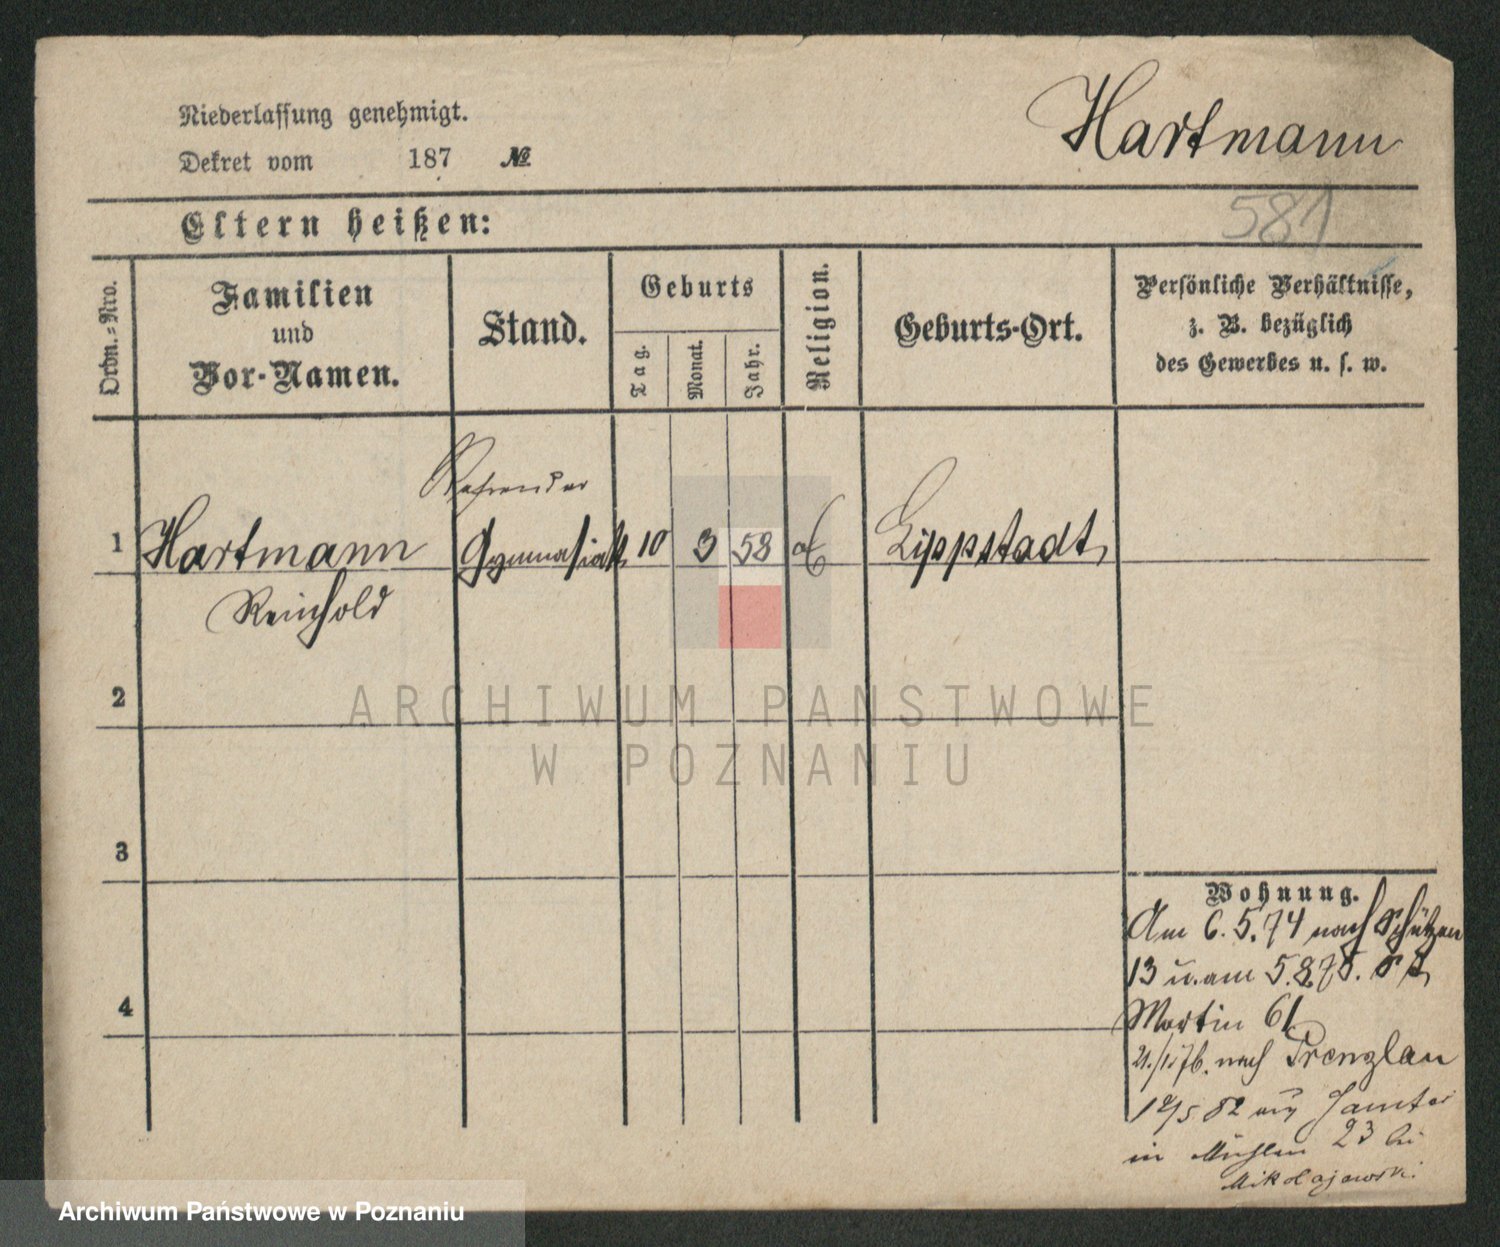 Niederlassung genehmigt.
Dekret vom 187 №
Hartmann
581
Eltern heißen:
Ordn.-Nro.
Familien
und
Vor-Namen.
Stand.
Geburts
Tag.
Monat.
Jahr.
Religion.
Geburts-Ort.
Persönliche Verhältnisse,
z. B. bezüglich
des Gewerbes u. s. w.
Referendar
1 Hartmann Gymnasiast 10 3 58 Lippstadt
Reinhold
2
ARCHIWUM PAŃSTWOWE
W POZNANIU
3
4
Wohnung.
Am 6. 5. 74 nach Schützen
13 u. am 5.8.75. St
Martin 61
nach Prenzlau
82 aus Samter
in Mühlen 23 bei
Mikolajewski
Archiwum Państwowe w Poznaniu